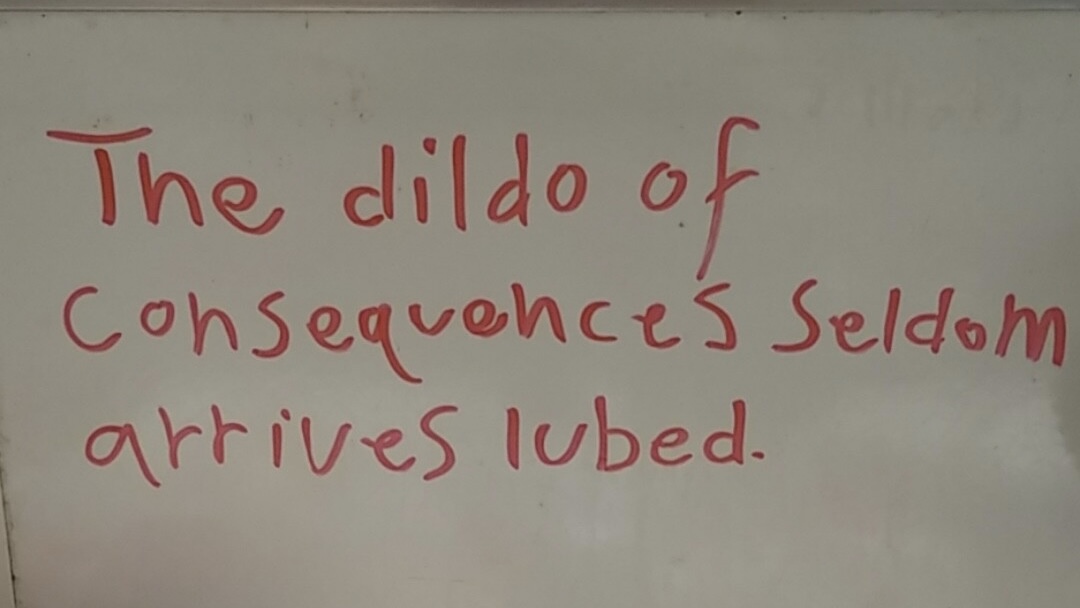 The dildo of
consequences seldom
arrives lubed.